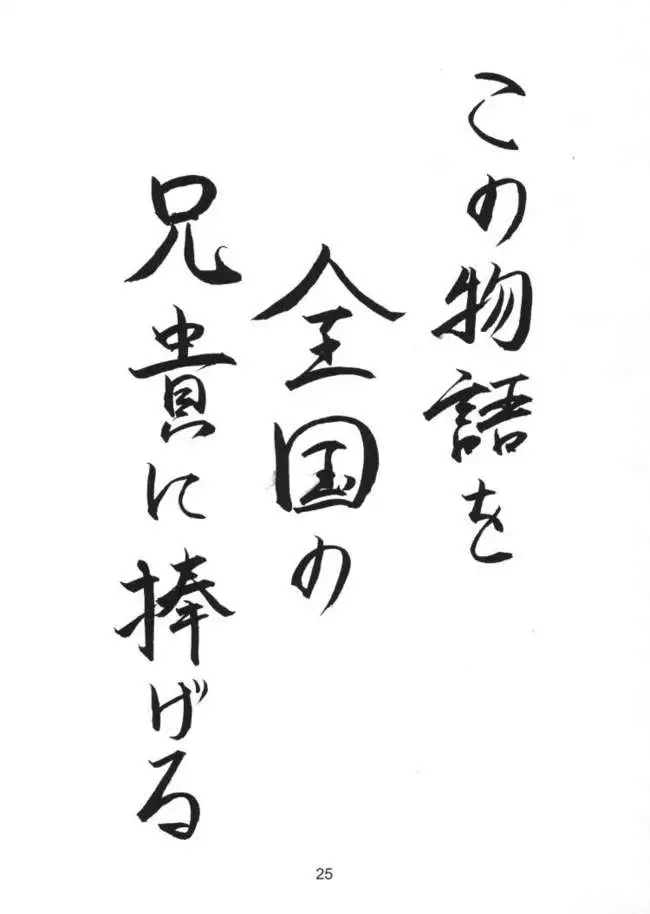 この物語を
全国の
兄貴に捧げる
25